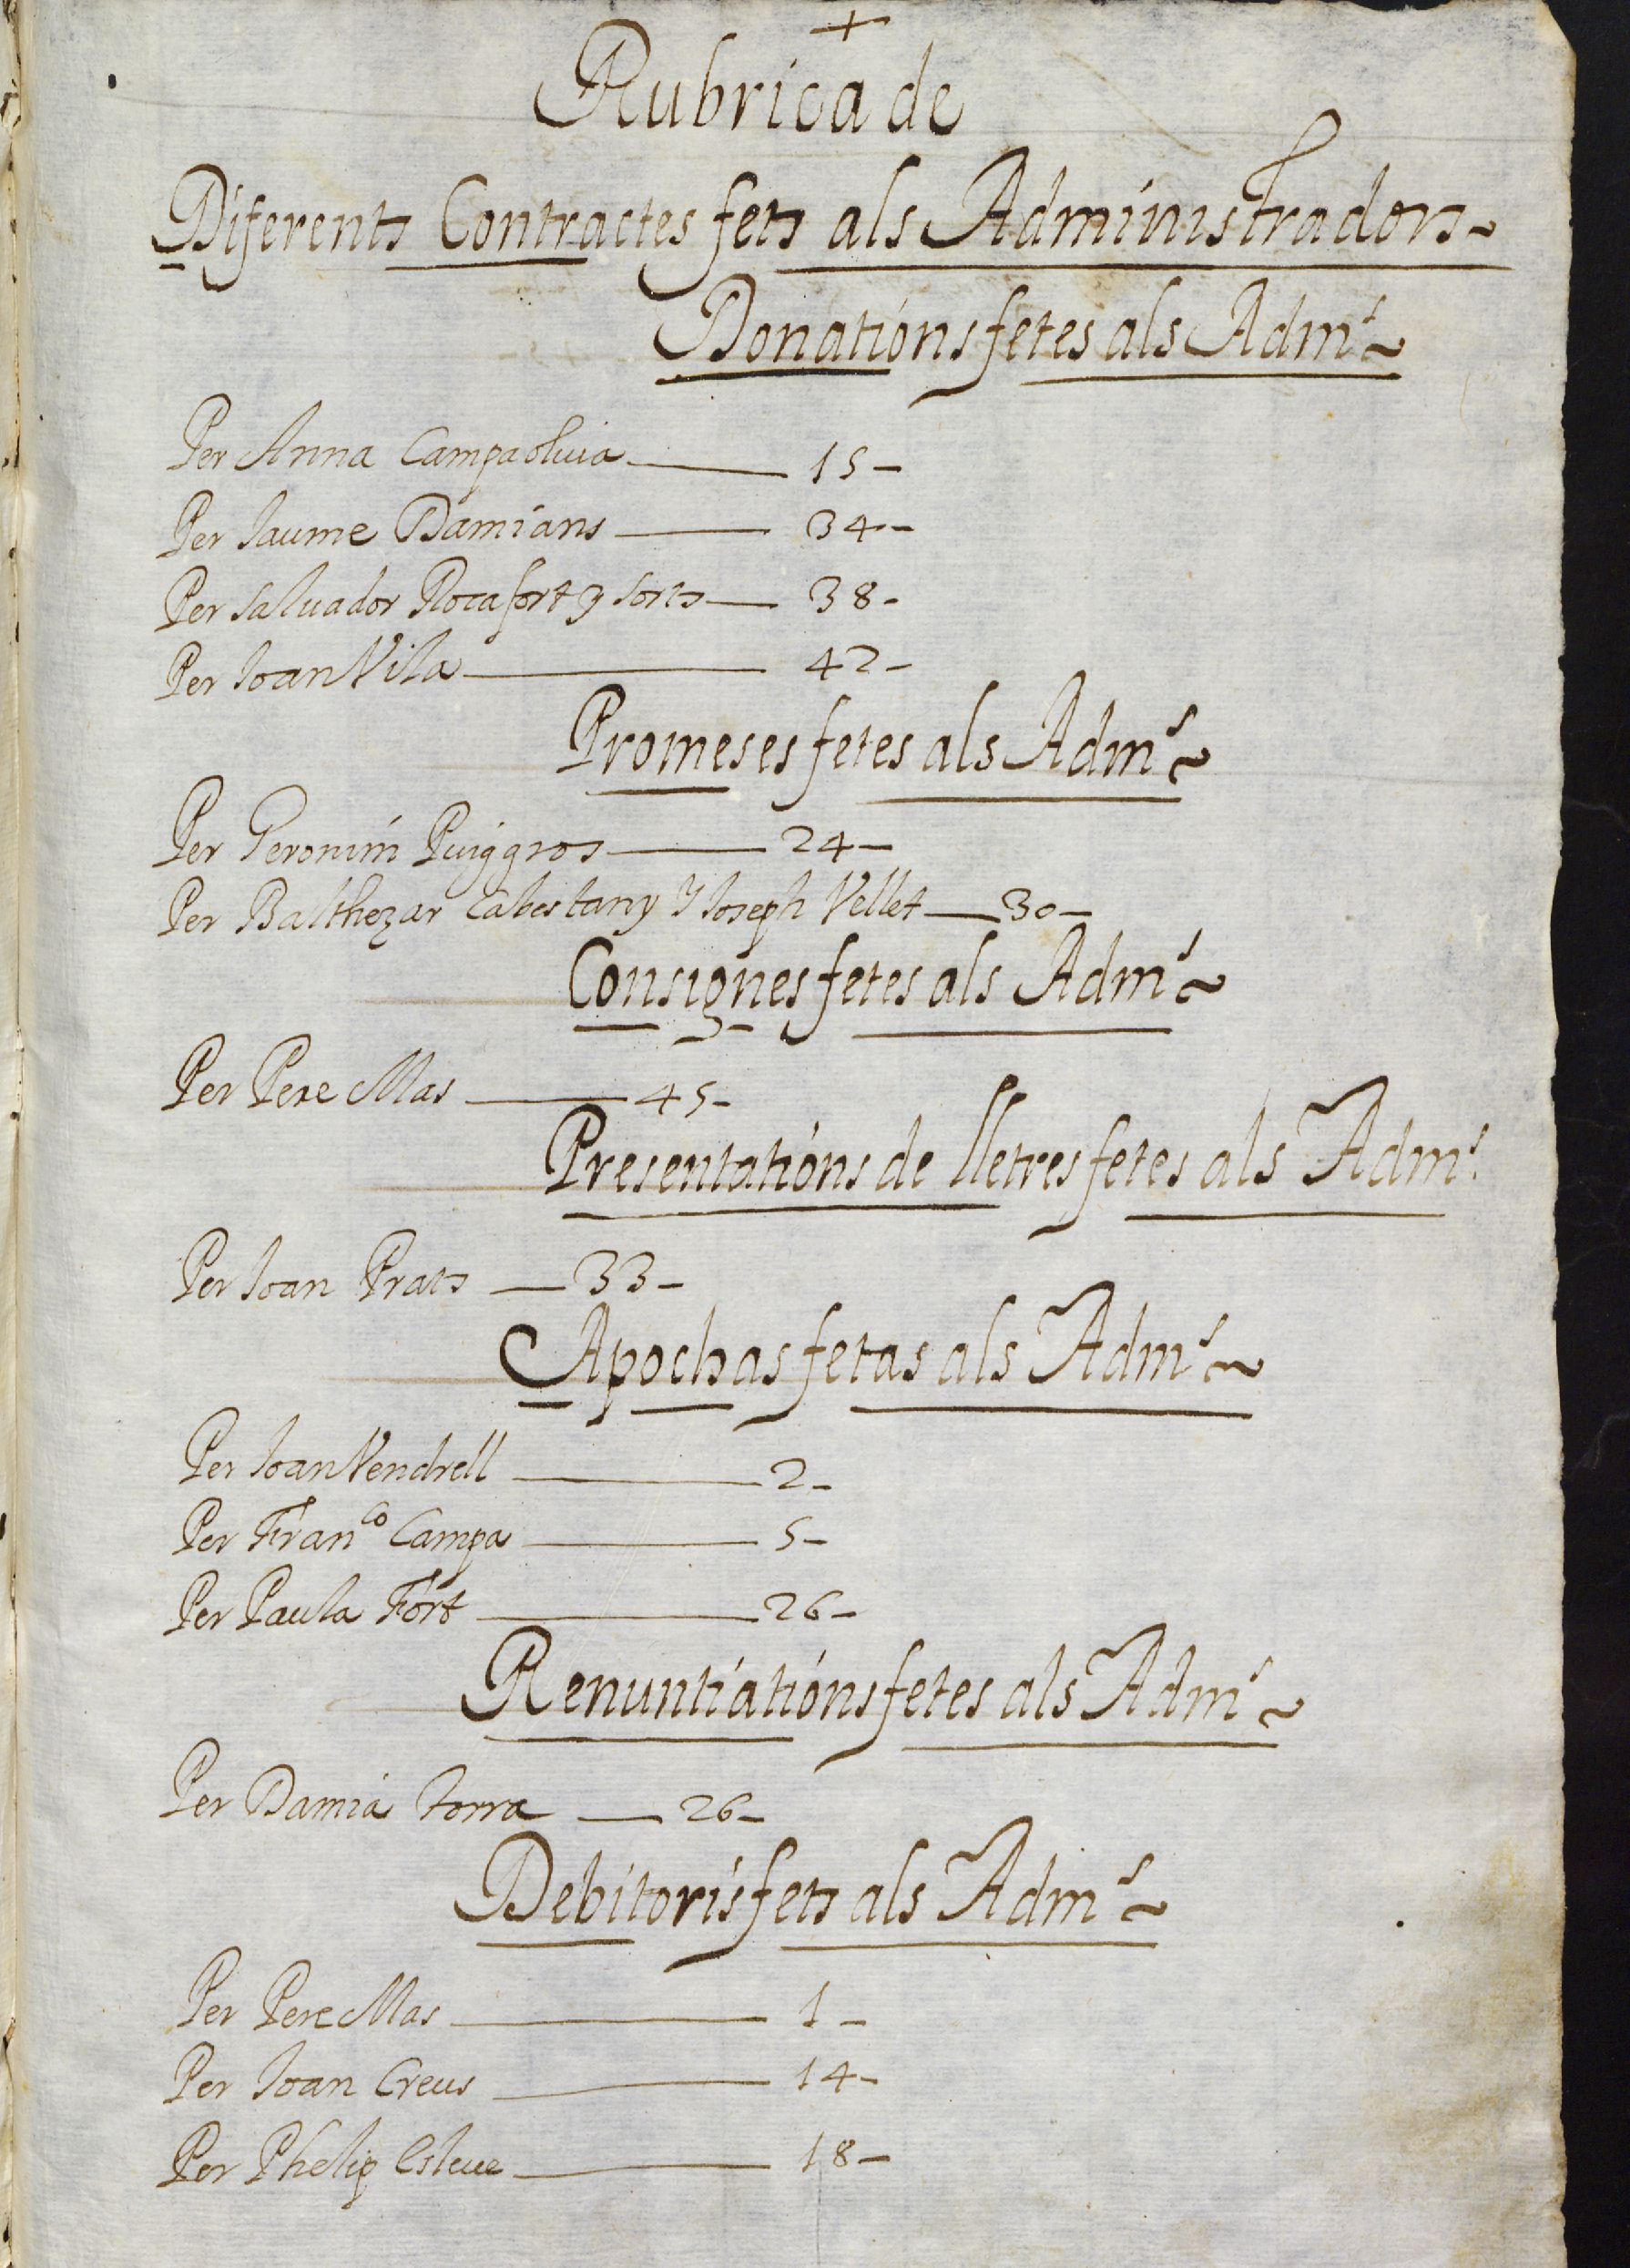 +
Rubrica de
Diferents Contractes fets als Administradors
Donatións fetes als Adm.s
Per Anna Campaoliuia 15
Per Jaume Damians 34
Per Saluador Rocafort y sorts 38
Per Joan Vila 42
Promeses fetes als Adm.s
Per Geronim Puiggros 24
Per Balthezar Cabestany y Joseph Vellet 30
Consignes fetes als Adm.s
Per Pere Mas 45
Presentatións de lletres fetes als Adm.s
Per Joan Prats 33
Apochas fetas als Adm.s
Per Joan Vendrell 2
Per Fran.co Campa 5
Per Paula Fort 26
Renuntiatións fetes als Adm.s
Per Damia Torra 26
Debitoris fets als Adm.s
Per Pere Mas 1
Per Joan Creus 14
Per Phelip Esteue 18